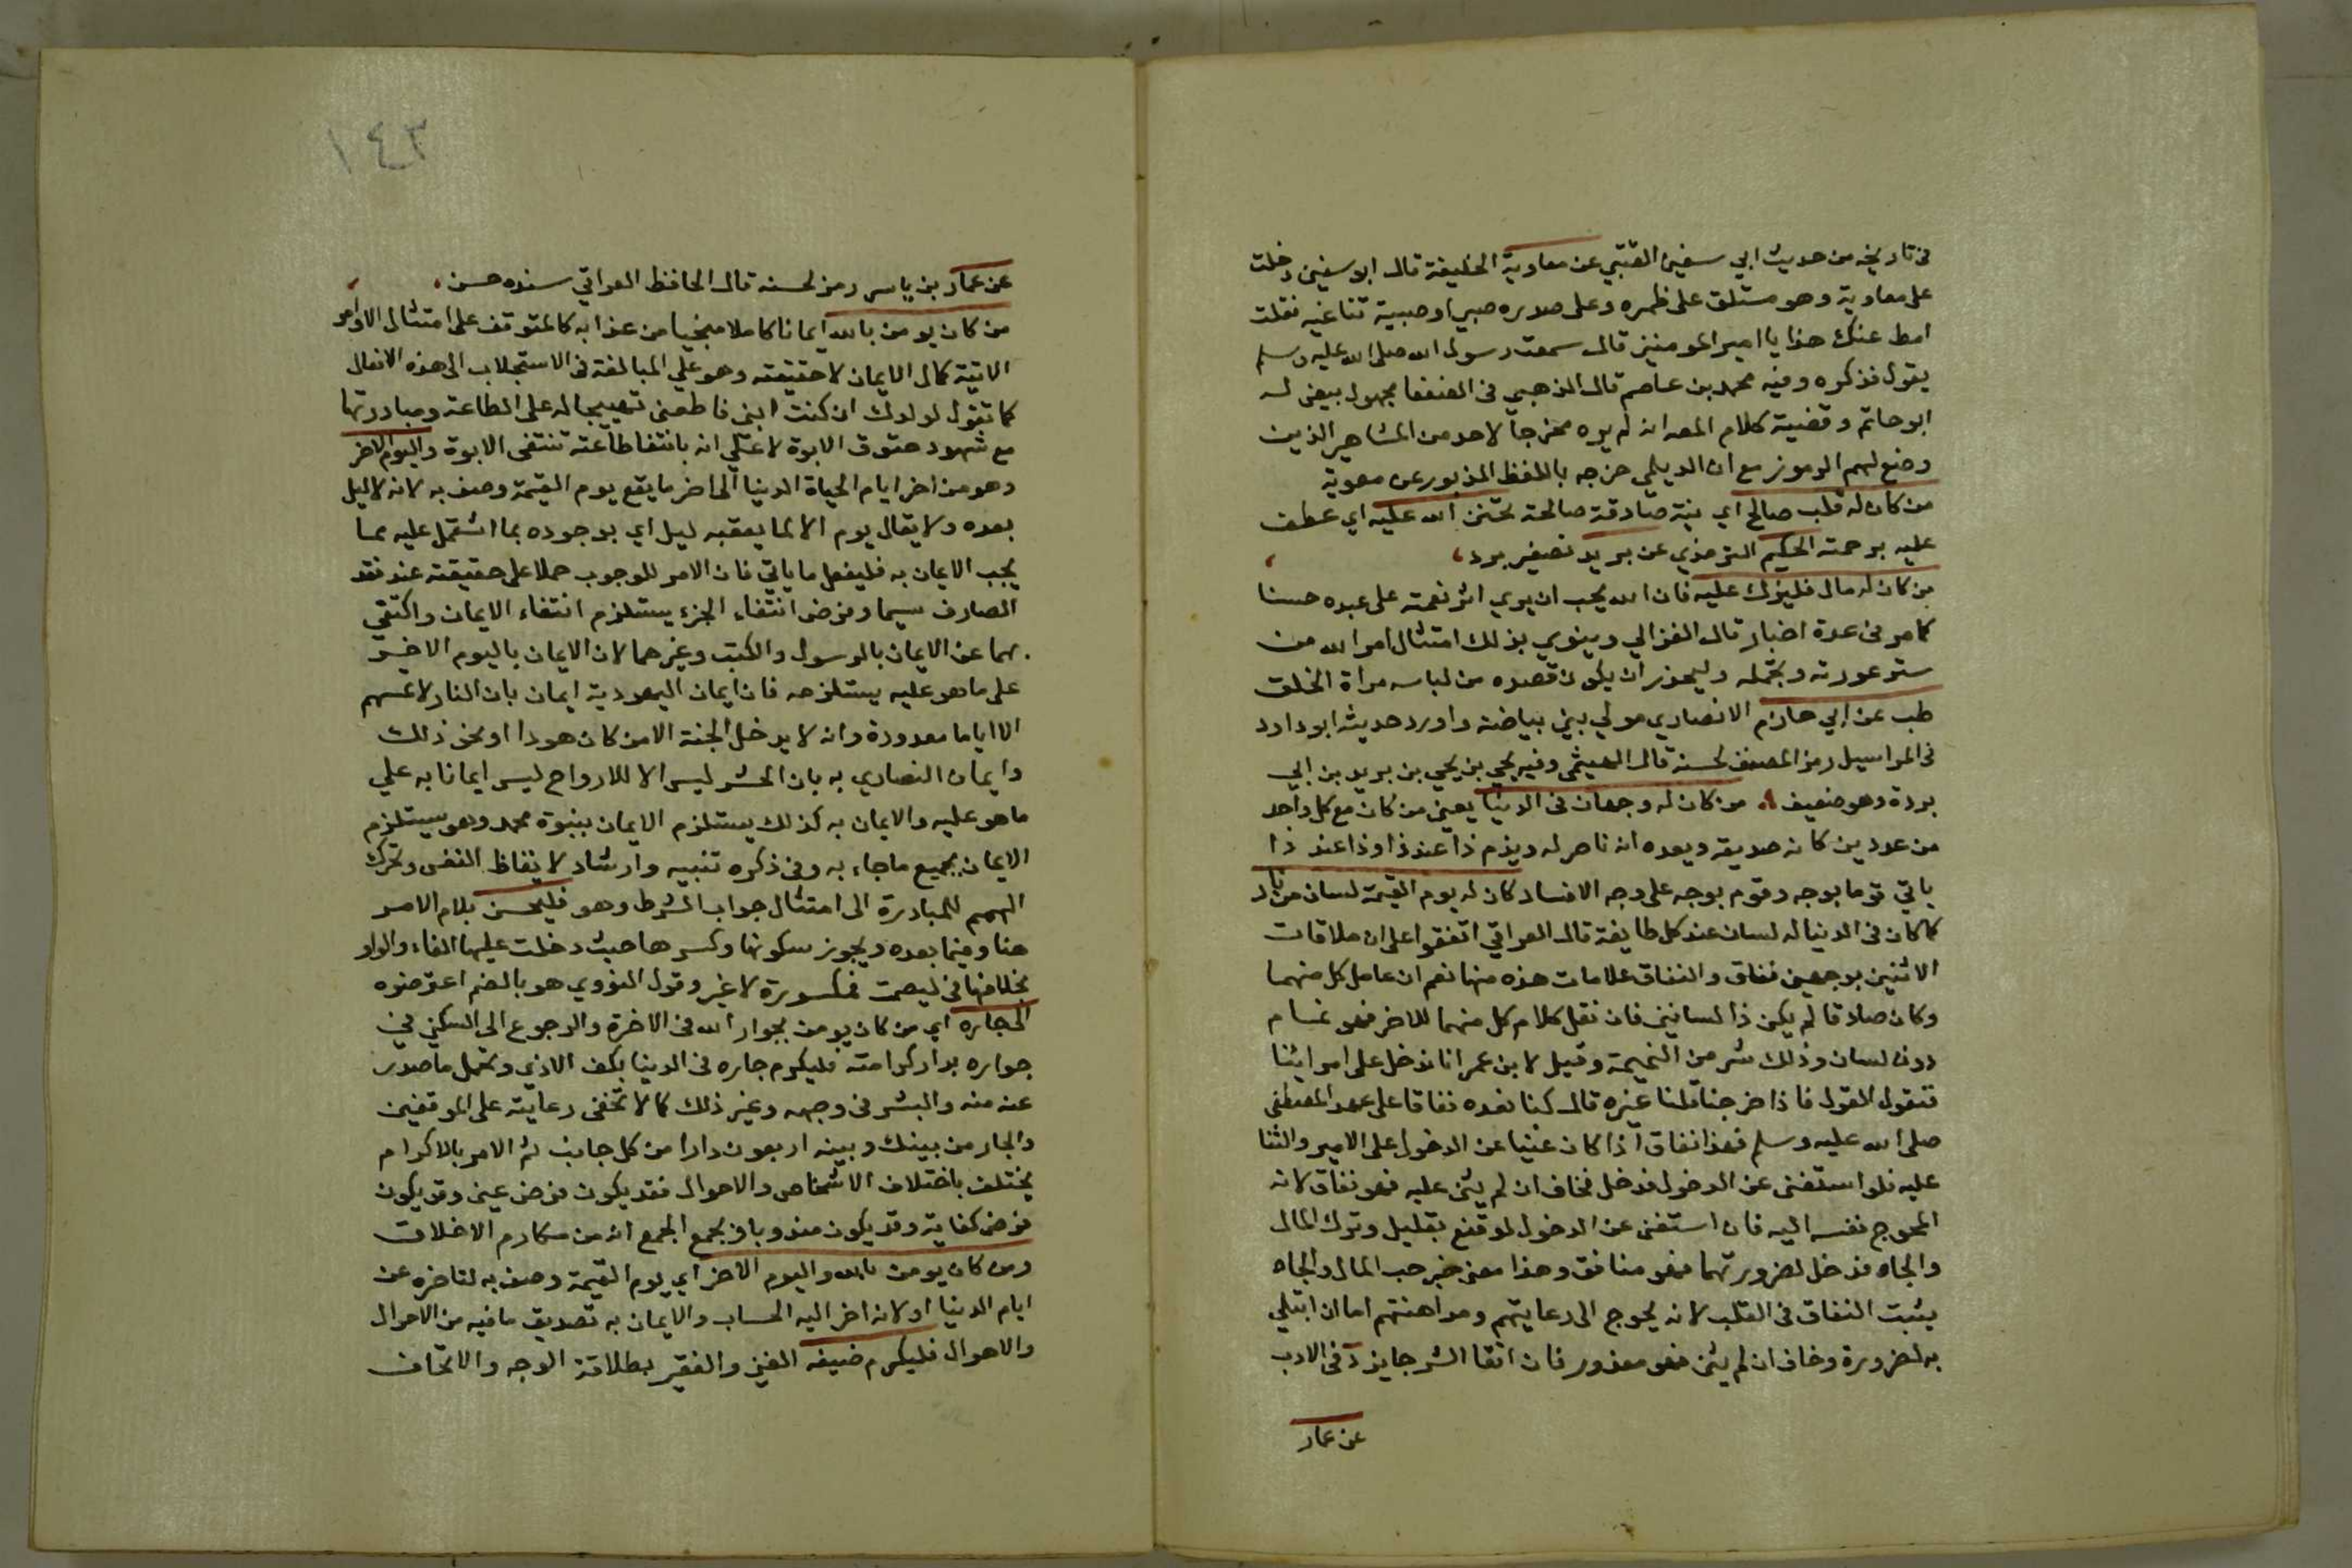 في تاريخه من حديث ابي سفين القتبي عن معاوية الخليفة قال ابو سفين دخلت
على معاوية وهو مستلق على ظهره وعلى صدره صبي او صبية تناغيه فقلت
امط عنك هذا يا امير المومنين قال سمعت رسول الله صلى الله عليه وسلم
يقول فذكره وفيه محمد بن عاصم قال الذهبي في الضعفا مجهول بيض له
ابو حاتم وقضية كلام المصه انه لم يره مخرجا لاحد من المشاهير الذين
وضع لهم الرموز مع ان الديلمي خرجه باللفظ المذبور عن معوية
من كان له قلب صالح اي نية صادقة صالحة تحنن الله عليه اي عطف
عليه برحمته الحكيم الترمذي عن بريد تصغير برد
من كان له مال فلير عليه فان الله يحب ان يري اثر نعمته على عبده حسنا
كما مر في عدة اخبار قال الغزالي وينوي بذلك امتثال امر الله من
ستر عورته وتجمله وليحذر ان يكون قصده من لباسه مراة الخلق
طب عن ابي حازم الانصاري مولي بني بياضة واورد حديثه ابو داود
في المراسيل رمز المصنف لحسنه قال الهيثمي وفيه يحي بن يحي بن بريد بن ابي
بردة وهو ضعيف من كان له وجهان في الدنيا يعني من كان مع كل واحد
من عدوين كانه صديقه ويعده انه ناصر له ويذم ذا عند ذا وذا عند ذا
ياتي قوما بوجه وقوم بوجه على وجه الافساد كان له يوم القيمة لسان من نار
كما كان في الدنيا له لسان عند كل طايفة قال العراقي اتفقوا على ان ملاقات
الاثنين بوجهين نفاق والنفاق علامات هذه منها نعم ان عامل كل منهما
وكان صادقا لم يكن ذا لسانين فان نقل كلام كل منهما للاخر فهو نمام
دون لسان وذلك شر من النميمة وقيل لابن عمر انا ندخل على امرائنا
فنقول القول فاذا خرجنا قلنا غيره قال كنا نعده نفاقا على عهد المصطفى
صلى الله عليه وسلم فهذا نفاق اذا كان غنيا عن الدخول على الامير والثنا
عليه فلو استغنى عن الدخول فدخل فخاف ان لم يثن عليه فهو نفاق لانه
المحوج نفسه اليه فان استغنى عن الدخول لو قنع بقليل وترك المال
والجاه فدخل لضرورتهما فهو منافق وهذا معنى خبر حب المال والجاه
يثبت النفاق في القلب لانه يحوج الى رعايتهم ومداهنتهم اما ان ابتلي
به لضرورة وخاف ان لم يثن فهو معذور فان اتقا الشر جايز د في الادب
عن عمار
١٤٣
عن عمار بن ياسر رمز لحسنه قال الحافظ العراقي سنده حسن
من كان يومن بالله ايمانا كاملا منجيا من عذابه كالمتوقف على امتثال الاوامر
الاتية كمال الايمان لا حقيقته وهو علي المبالغة في الاستجلاب الى هذه الافعال
كما تقول لولدك ان كنت ابني فاطعني تهييجا له على الطاعة ومبادرتها
مع شهود حقوق الابوة لا على انه بانتفا طاعته تنتفى الابوة واليوم الاخر
وهو من اخر ايام الحياة الدنيا الى اخر ما يقع يوم القيمة وصف به لانه لا ليل
بعده ولا يقال يوم الا لما يعقبه ليل اي بوجوده بما اشتمل عليه مما
يجب الايمان به فليفعل ما ياتي فان الامر للوجوب حملا على حقيقته عند فقد
الصارف سيما وفرض انتفاء الجزء يستلزم انتفاء الايمان واكتفي
بهما عن الايمان بالرسول والكتب وغيرهما لان الايمان باليوم الاخير
على ما هو عليه يستلزمه فان ايمان اليهودية ايمان بان النار لا تمسهم
الا اياما معدودة وانه لا يدخل الجنة الا من كان هودا او نحو ذلك
وايمان النصاري به بان الحشر ليس الا للارواح ليس ايمانا به علي
ما هو عليه والايمان به كذلك يستلزم الايمان بنبوة محمد وهو يستلزم
الايمان بجميع ما جاء به وفي ذكره تنبيه وارشاد لايقاظ النفس وتحرك
الهمم للمبادرة الى امتثال جواب الشرط وهو فليحسن بلام الامر
هنا وفيما بعده ويجوز سكونها وكسرها حيث دخلت عليها الفاء والواو
بخلافها في ليصمت فمكسورة لا غير وقول النووي هو بالضم اعترضوه
الى جاره اي من كان يومن بجوار الله في الاخرة والرجوع الى السكنى في
جواره بدار كرامته فليكرم جاره في الدنيا بكف الاذي وتحمل ما صدر
عنه منه والبشر في وجهه وغير ذلك كما لا تخفى رعايته على الموقفين
والجار من بينك وبينه اربعون دارا من كل جانب ثم الامر بالاكرام
يختلف باختلاف الاشخاص والاحوال فقد يكون فرض عين وقد يكون
فرض كفاية وقد يكون مندوبا ويجمع الجمع انه من مكارم الاخلاق
ومن كان يومن بالله واليوم الاخر اي يوم القيمة وصف به لتاخره عن
ايام الدنيا او لانه اخر اليه الحساب والايمان به تصديق ما فيه من الاحوال
والاهوال فليكرم ضيفه الغني والفقير بطلاقة الوجه والاتحاف